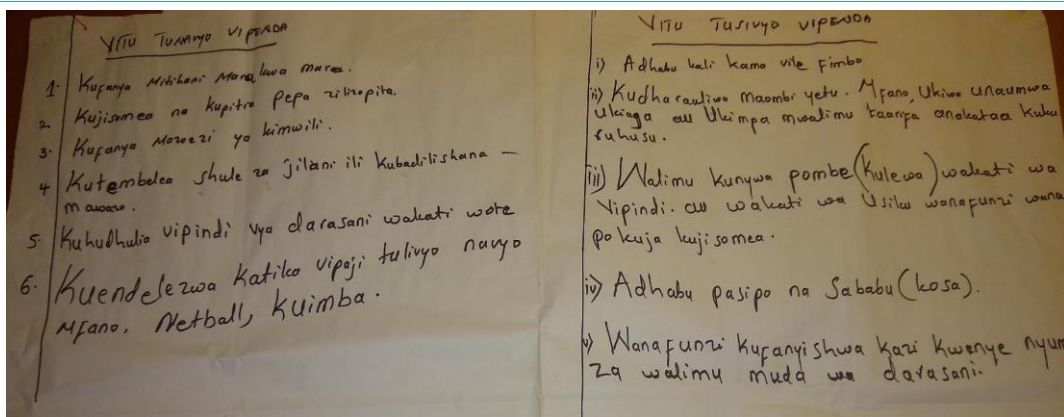 VITU TUNAVYO VIPENDA
1. Kufanya Mitihani Mara kwa mara.
2. Kujisomea na kupitia pepa zilizopita.
3. Kufanya Mazoezi ya kimwili.
4 Kutembelea shule za jilani ili Kubadilishana –
mawazo.
5. Kuhudhulia vipindi vya darasani wakati wote
6. Kuendelezwa Katika vipaji tulivyo navyo
Mfano, Netball, Kuimba.
VITU TUSIVYO VIPENDA
i) Adhabu kali kama vile fimbo
ii) Kudharauliwa maombi yetu. Mfano, Ukiwa unaumwa
Ukiaga au Ukimpa mwalimu taarifa anakataa kuku
ruhusu.
iii) Walimu kunywa pombe (kulewa) wakati wa
Vipindi. au wakati wa Usiku wanafunzi wana
po kuja kujisomea.
iv) Adhabu pasipo na Sababu (kosa).
v) Wanafunzi kufanyishwa kazi kwenye nyum
za walimu muda wa darasani.